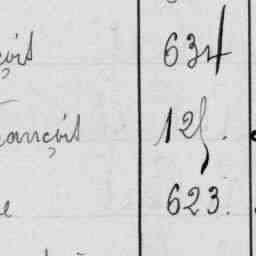 çois 634
rançois 125.
e 623.